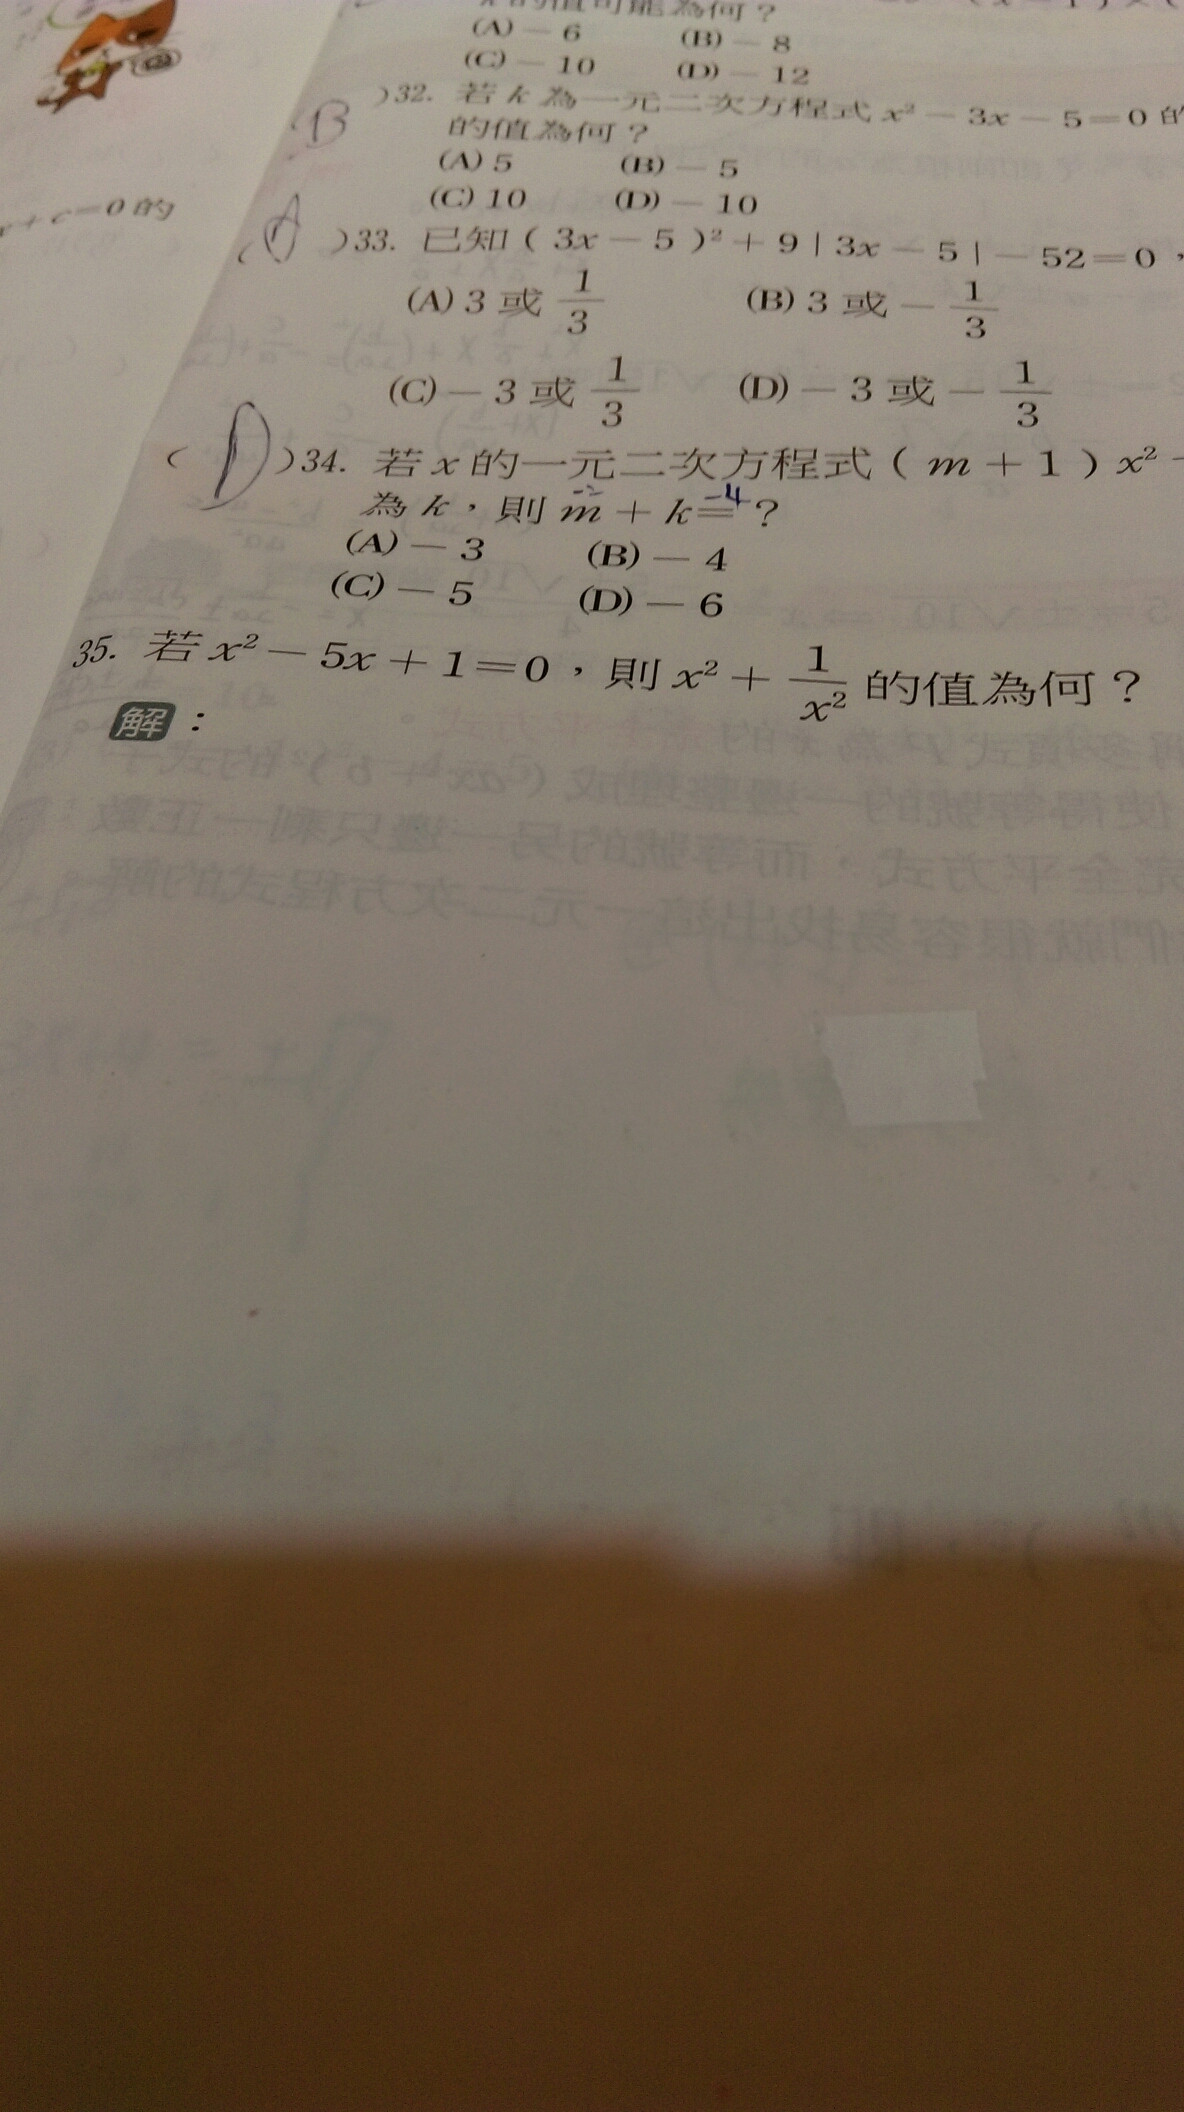 的值可能為何？
(A)－6 (B)－8
(C)－10 (D)－12
B )32. 若 k 為一元二次方程式 x²－3x－5＝0 的
的值為何？
(A) 5 (B)－5
(C) 10 (D)－10
(A)33. 已知（3x－5）²＋9｜3x－5｜－52＝0，
(A) 3 或 1/3 (B) 3 或－1/3
(C)－3 或 1/3 (D)－3 或－1/3
(D)34. 若 x 的一元二次方程式（m＋1）x²
為 k，則 m＋k＝？
-2 -4
(A)－3 (B)－4
(C)－5 (D)－6
35. 若 x²－5x＋1＝0，則 x²＋1/x² 的值為何？
解：
＋c＝0 的